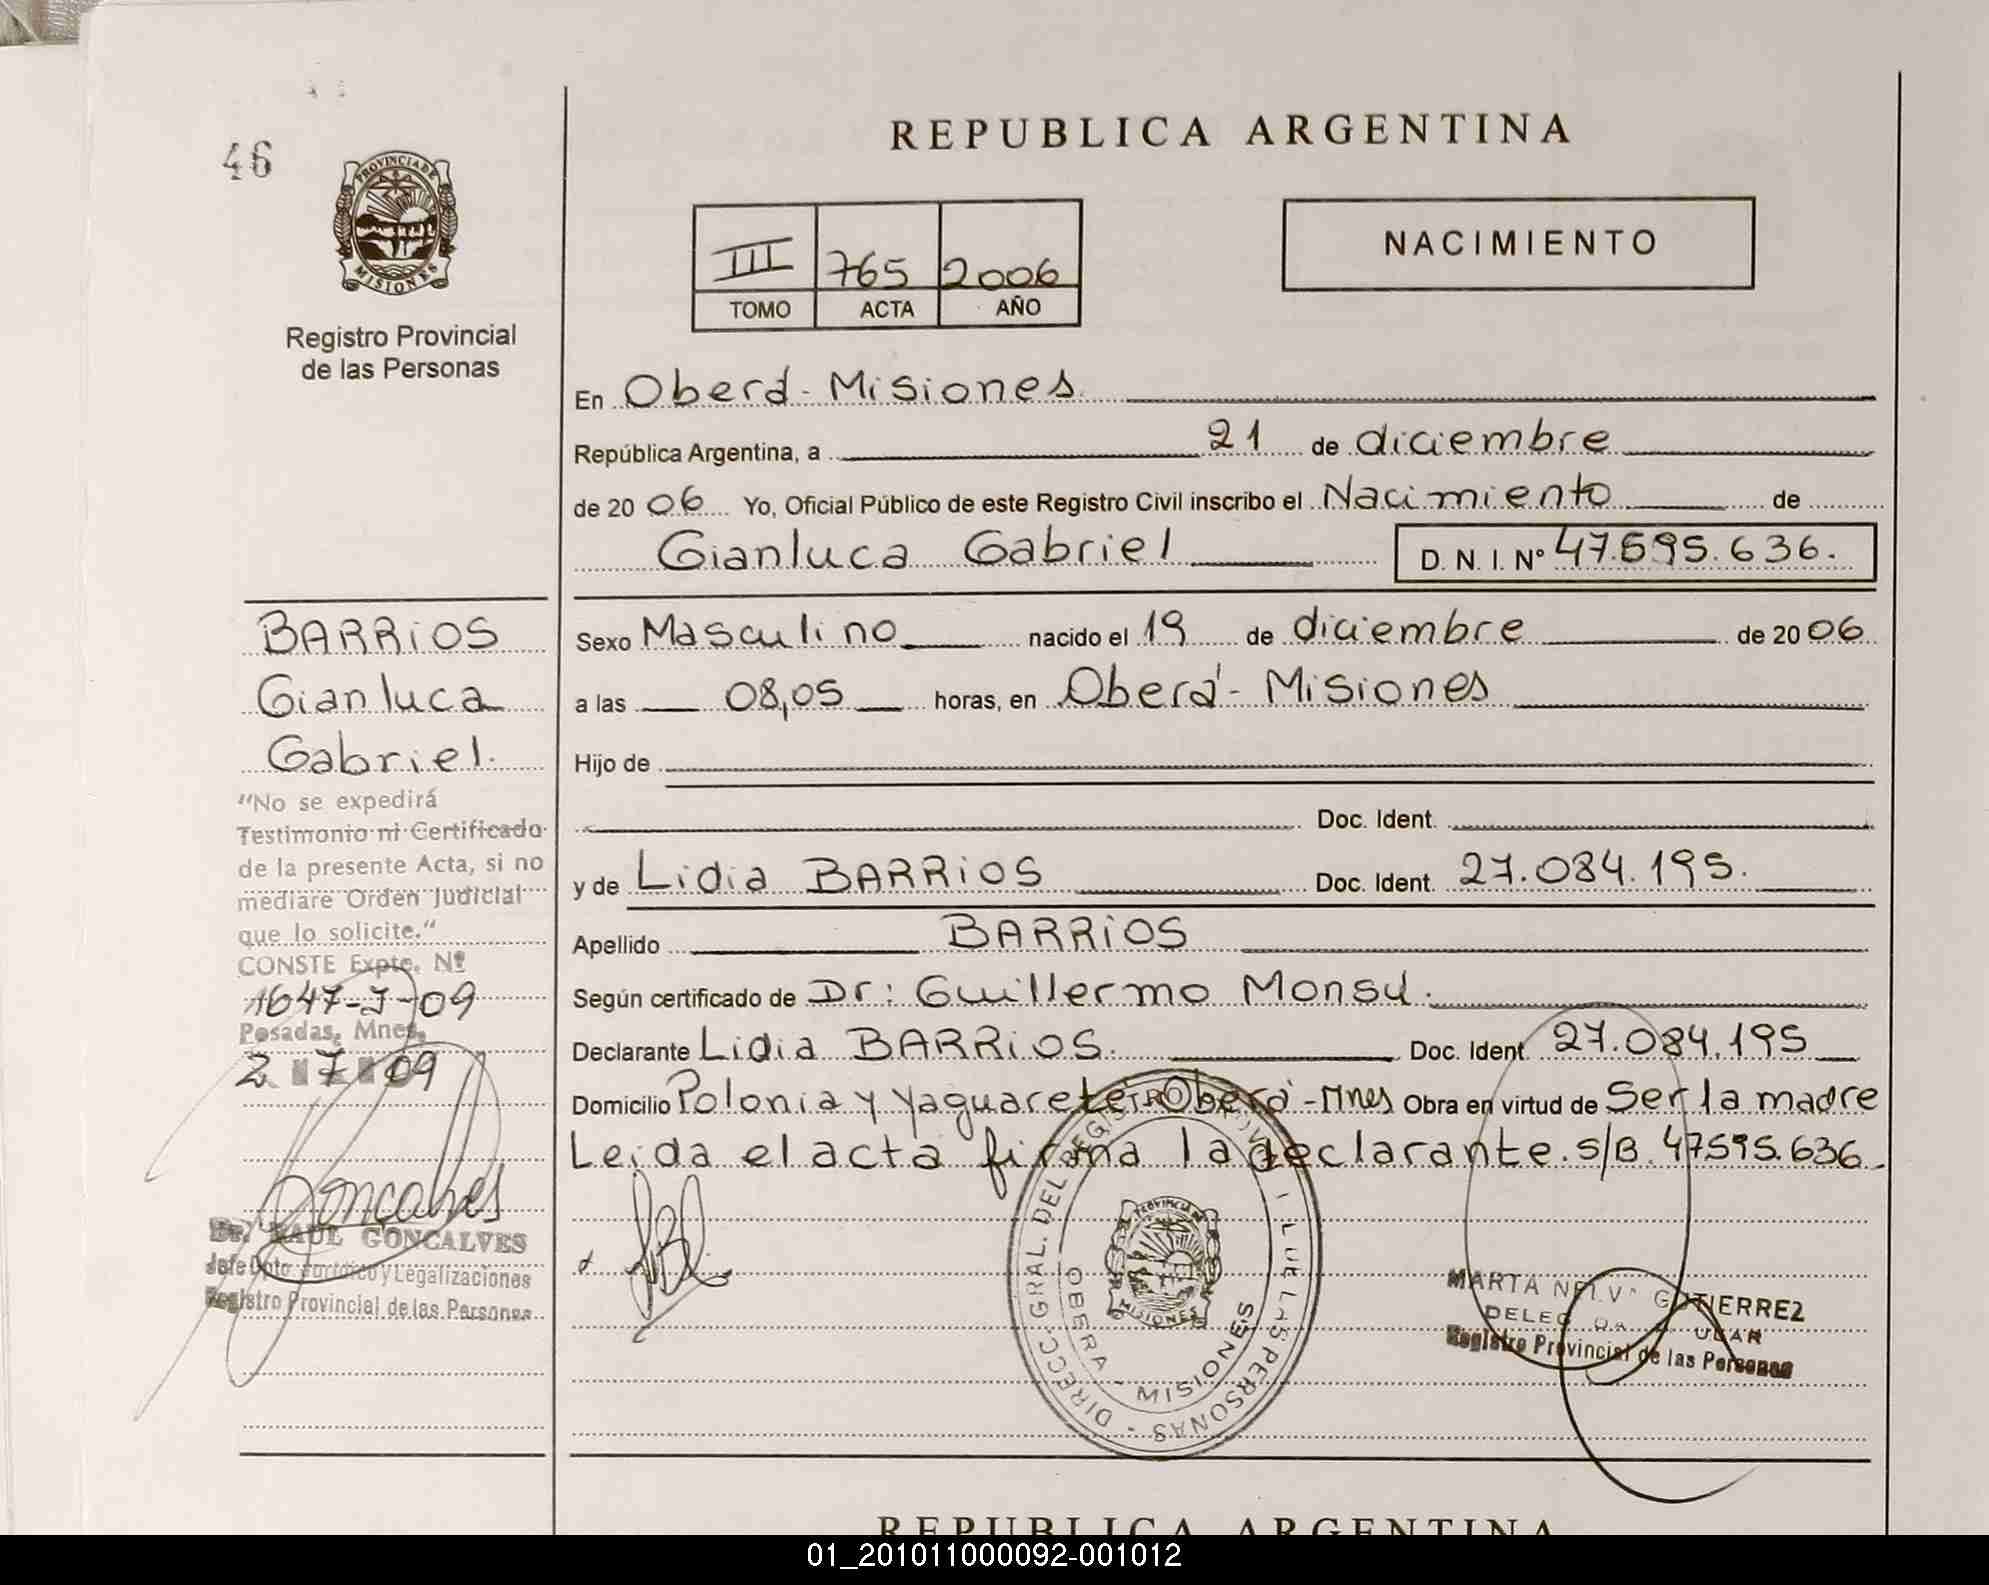 46
PROVINCIA DE
MISIONES
Registro Provincial
de las Personas
REPUBLICA ARGENTINA
III 765 2006
TOMO ACTA AÑO
NACIMIENTO
En Oberá - Misiones
República Argentina, a 21 de diciembre
de 2006 Yo, Oficial Público de este Registro Civil inscribo el Nacimiento de
Gianluca Gabriel D. N. I. Nº 47.595.636.
Sexo Masculino nacido el 19 de diciembre de 2006
a las 08,05 horas, en Oberá - Misiones
Hijo de
Doc. Ident.
y de Lidia BARRiOS Doc. Ident. 27.084.195.
Apellido BARRiOS
Según certificado de Dr: Guillermo Monsu.
Declarante Lidia BARRiOS. Doc. Ident. 27.084.195
Domicilio Polonia y Yaguareté, Oberá - Mnes Obra en virtud de Ser la madre
Leida el acta firma la declarante. S/B. 47595.636
BARRiOS
Gianluca
Gabriel.
"No se expedirá
Testimonio ni Certificado
de la presente Acta, si no
mediare Orden Judicial
que lo solicite."
CONSTE Expte. Nº
1647-J-09
Posadas, Mnes,
2 7 09
Goncalves
Dr. RAUL GONCALVES
Jefe Dpto. Jurídico y Legalizaciones
Registro Provincial de las Personas
DIRECC. GRAL. DEL REGISTRO PROVINCIAL DE LAS PERSONAS -
OBERA - MISIONES
PROVINCIA DE
MISIONES
MARTA NELVA GUTIERREZ
DELEGADA TITULAR
Registro Provincial de las Personas
REPUBLICA ARGENTINA
01_201011000092-001012